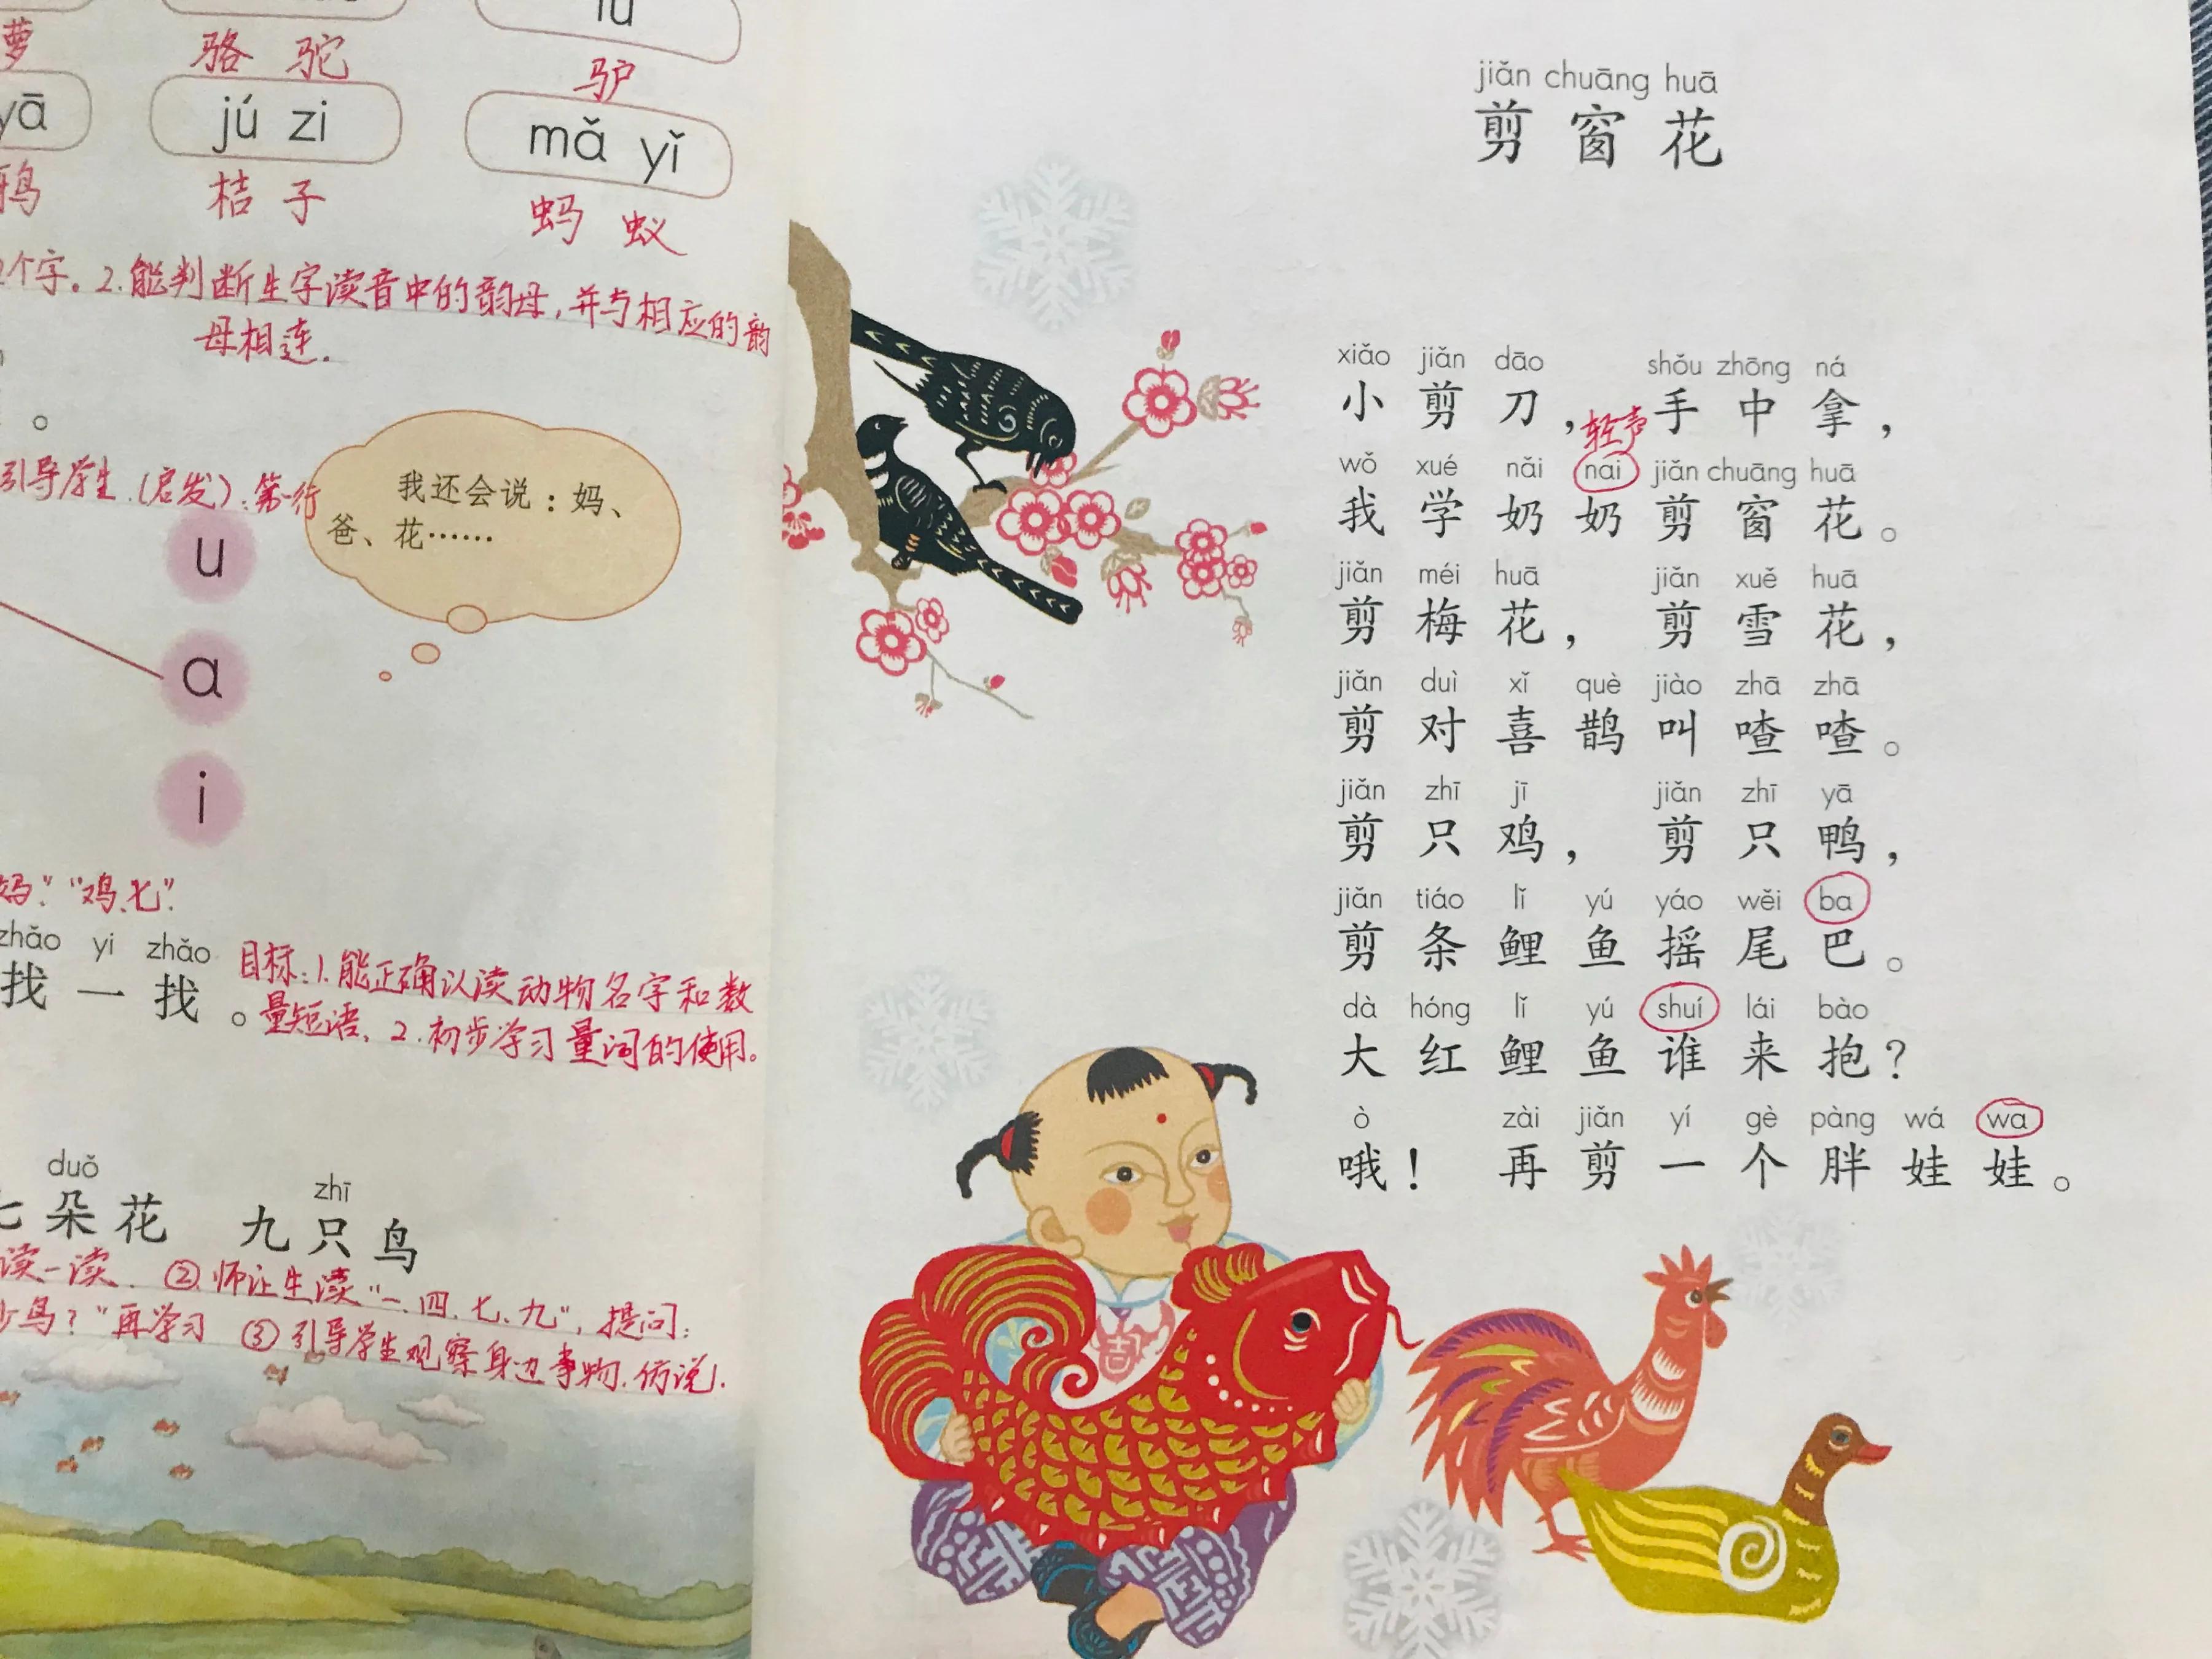 lǘ
萝 骆驼 驴
yā jú zi mǎ yǐ
鸦 桔子 蚂蚁
个字。2.能判断生字读音中的韵母,并与相应的韵
母相连.
。
引导学生.(启发):第一行
我还会说：妈、
爸、花……
u
ɑ
i
妈”“鸡、七”.
zhǎo yi zhǎo
找一找。
目标:1.能正确认读动物名字和数
量短语, 2.初步学习量词的使用。
duǒ zhī
七朵花 九只鸟
读一读. ②师让生读“一.四.七.九”, 提问:
少鸟?”再学习 ③引导学生观察身边事物.仿说!
jiǎn chuāng huā
剪窗花
xiǎo jiǎn dāo shǒu zhōng ná
小剪刀，手中拿，
轻声
wǒ xué nǎi nai jiǎn chuāng huā
我学奶奶剪窗花。
jiǎn méi huā jiǎn xuě huā
剪梅花，剪雪花，
jiǎn duì xǐ què jiào zhā zhā
剪对喜鹊叫喳喳。
jiǎn zhī jī jiǎn zhī yā
剪只鸡，剪只鸭，
jiǎn tiáo lǐ yú yáo wěi ba
剪条鲤鱼摇尾巴。
dà hóng lǐ yú shuí lái bào
大红鲤鱼谁来抱？
ò zài jiǎn yí gè pàng wá wa
哦！再剪一个胖娃娃。